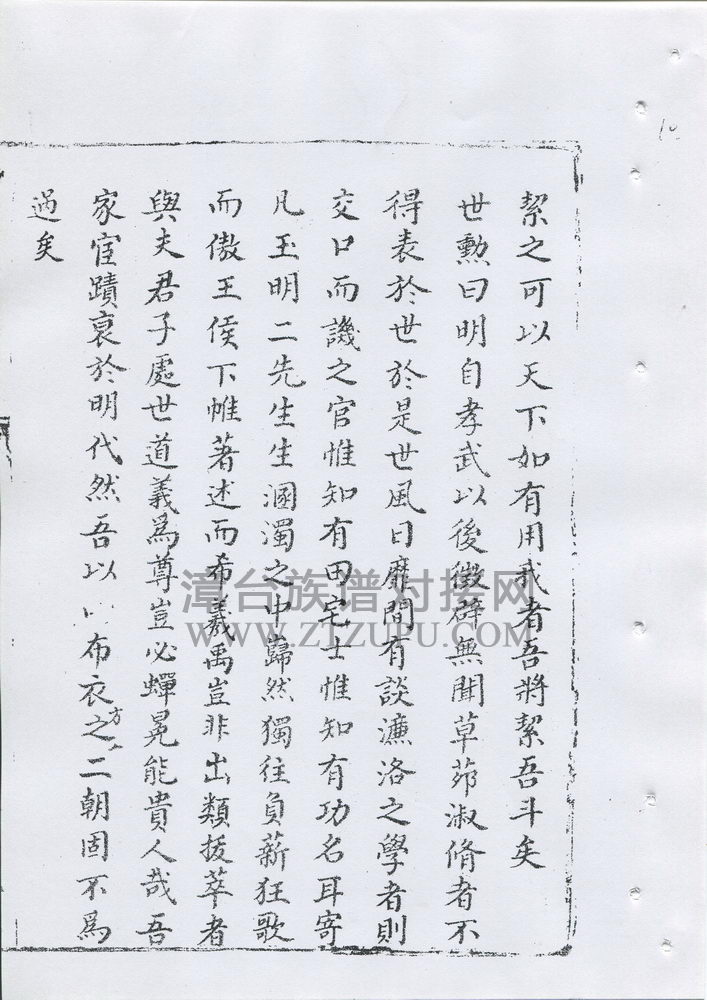 絜之可以天下如有用我者吾將絜吾斗矣
世勲曰明自孝武以後徴辟無聞草茆淑脩者不
得表於世於是世風日靡間有談濂洛之學者則
交口而譏之官惟知有田宅士惟知有功名耳寄
凡玉明二先生生溷濁之中巋然獨往負薪狂歌
而傲王侯下帷著述而希羲禹豈非出類拔萃者
與夫君子處世道義為尊豈必蟬冕能貴人哉吾
家宦蹟裒於明代然吾以布衣之方二朝固不為
過矣
漳台族谱对接网
WWW.ZTZUPU.COM